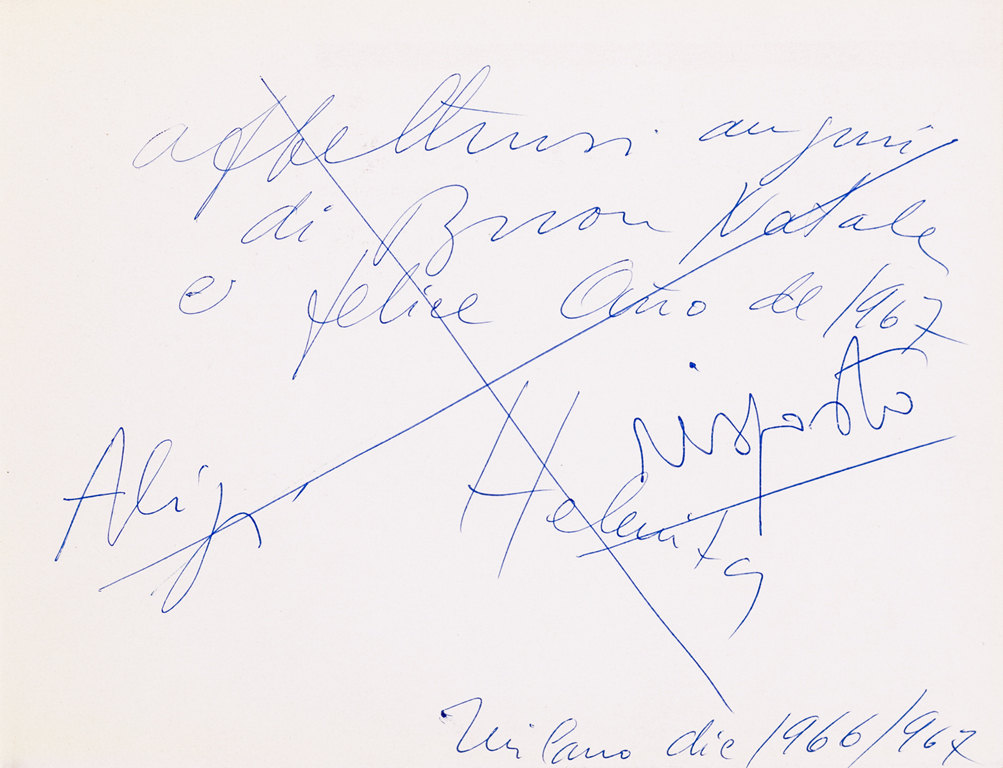 affettuosi auguri
di Buon Natale
e felice Año del 1967
risposto
Aligi Helenita
Milano dic 1966/1967